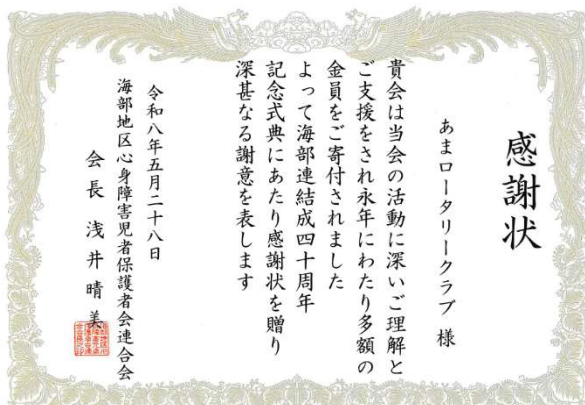 感謝状
あまロータリークラブ 様
貴会は当会の活動に深いご理解と
ご支援をされ永年にわたり多額の
金員をご寄付されました
よって海部連結成四十周年
記念式典にあたり感謝状を贈り
深甚なる謝意を表します
令和八年五月二十八日
海部地区心身障害児者保護者会連合会
会長 浅井晴美